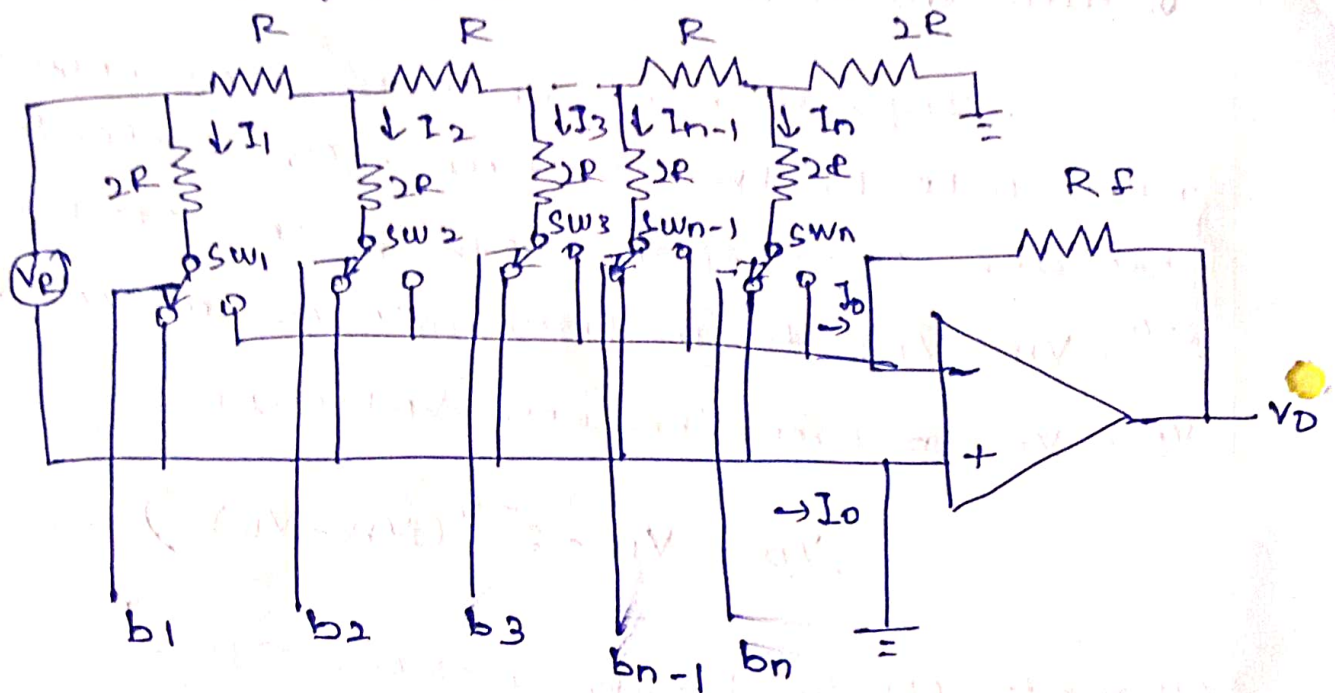 R R R 2R
↓ I1 ↓ I2 ↓ I3 ↓ In-1 ↓ In
2R 2R 2R 2R 2R
Rf
SW1 SW2 SW3 SWn-1 SWn
VR
I0
→
-
VO
+
→ I0
b1 b2 b3 bn-1 bn